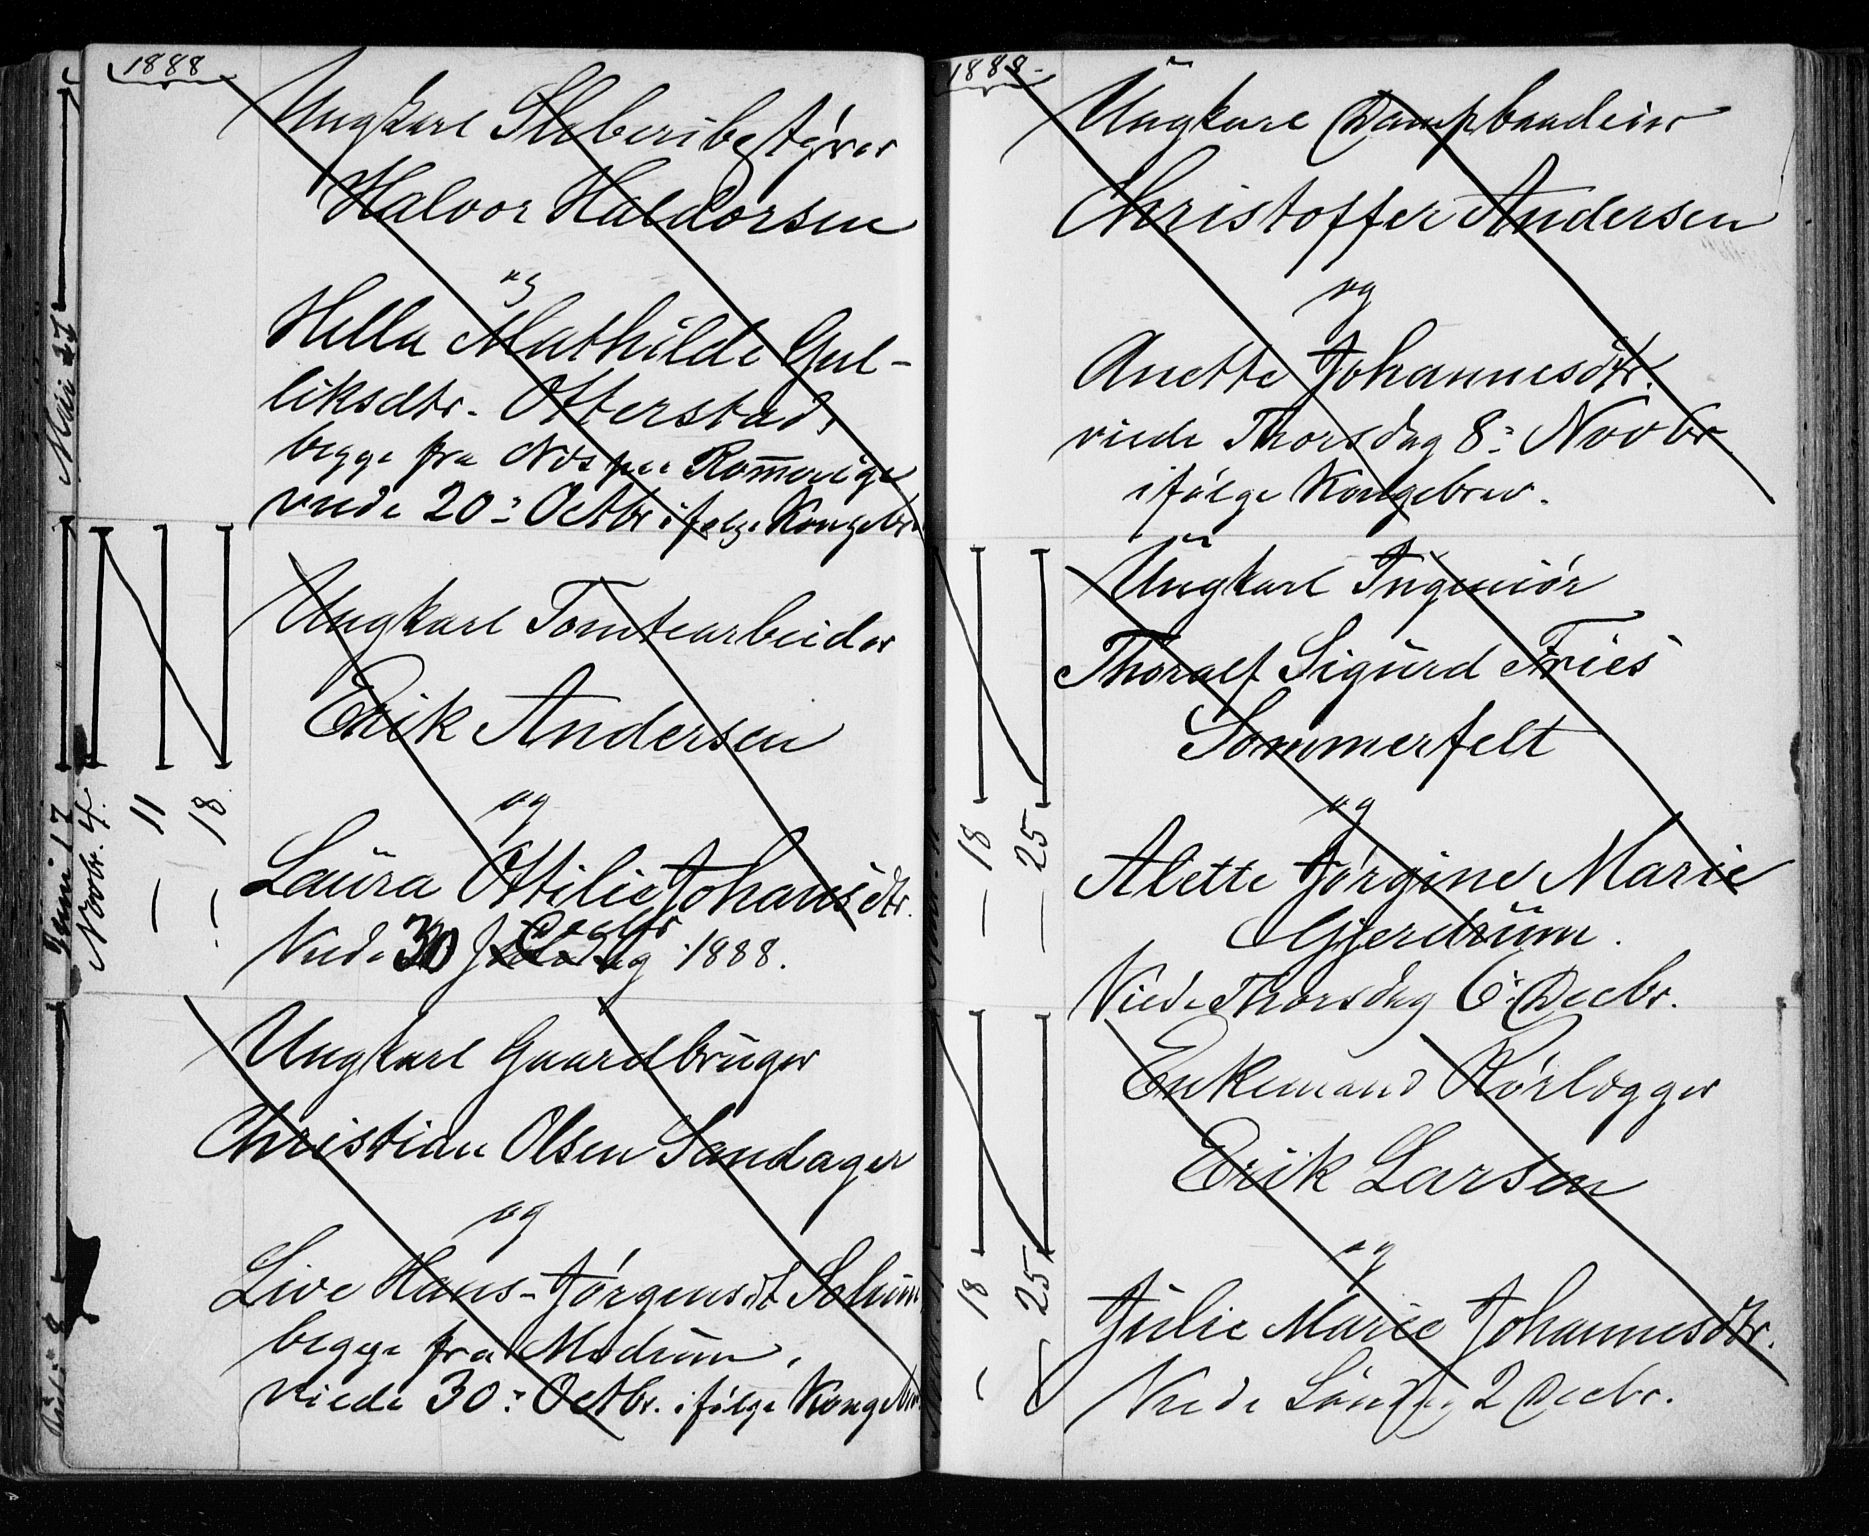 1888
Ungkarl Sliberibestyrer
Halvor Haldorsen
og
Hella Mathilde Gul-
liksdtr. Otterstad,
begge fra Næs paa Romerige
viede 20: Octbr ifølge Kongebr.
Ungkarl Tomtearbeider
Erik Andersen
og
Laura Ottilie Johansdtr.
Viede 30 Decbr 1888.
Ungkarl Gaardbruger
Christian Olsen Sandager
og
Live Hans-Jørgensdt
begge fra Modum,
viede 30: Octbr. ifølge Kongebr.
Mai 27
Juni 17
Novbr. 4.
— 11
— 18.
1888
Ungkarl Dampbaadeier
Christoffer Andersen
og
Anette Johannesdtr.
viede Thorsdag 8: Novbr
ifølge Kongebrev.
Ungkarl Ingeniør
Thoralf Sigurd Fries
Sommerfelt
og
Alette Jørgine Marie
Gjerdrum.
Viede Thorsdag 6: Decbr.
Enkemand Rørlægger
Erik Larsen
og
Julie Marie Johannesdtr.
Viede Søndag 2 Decbr.
— 18
— 25
— 18
— 25